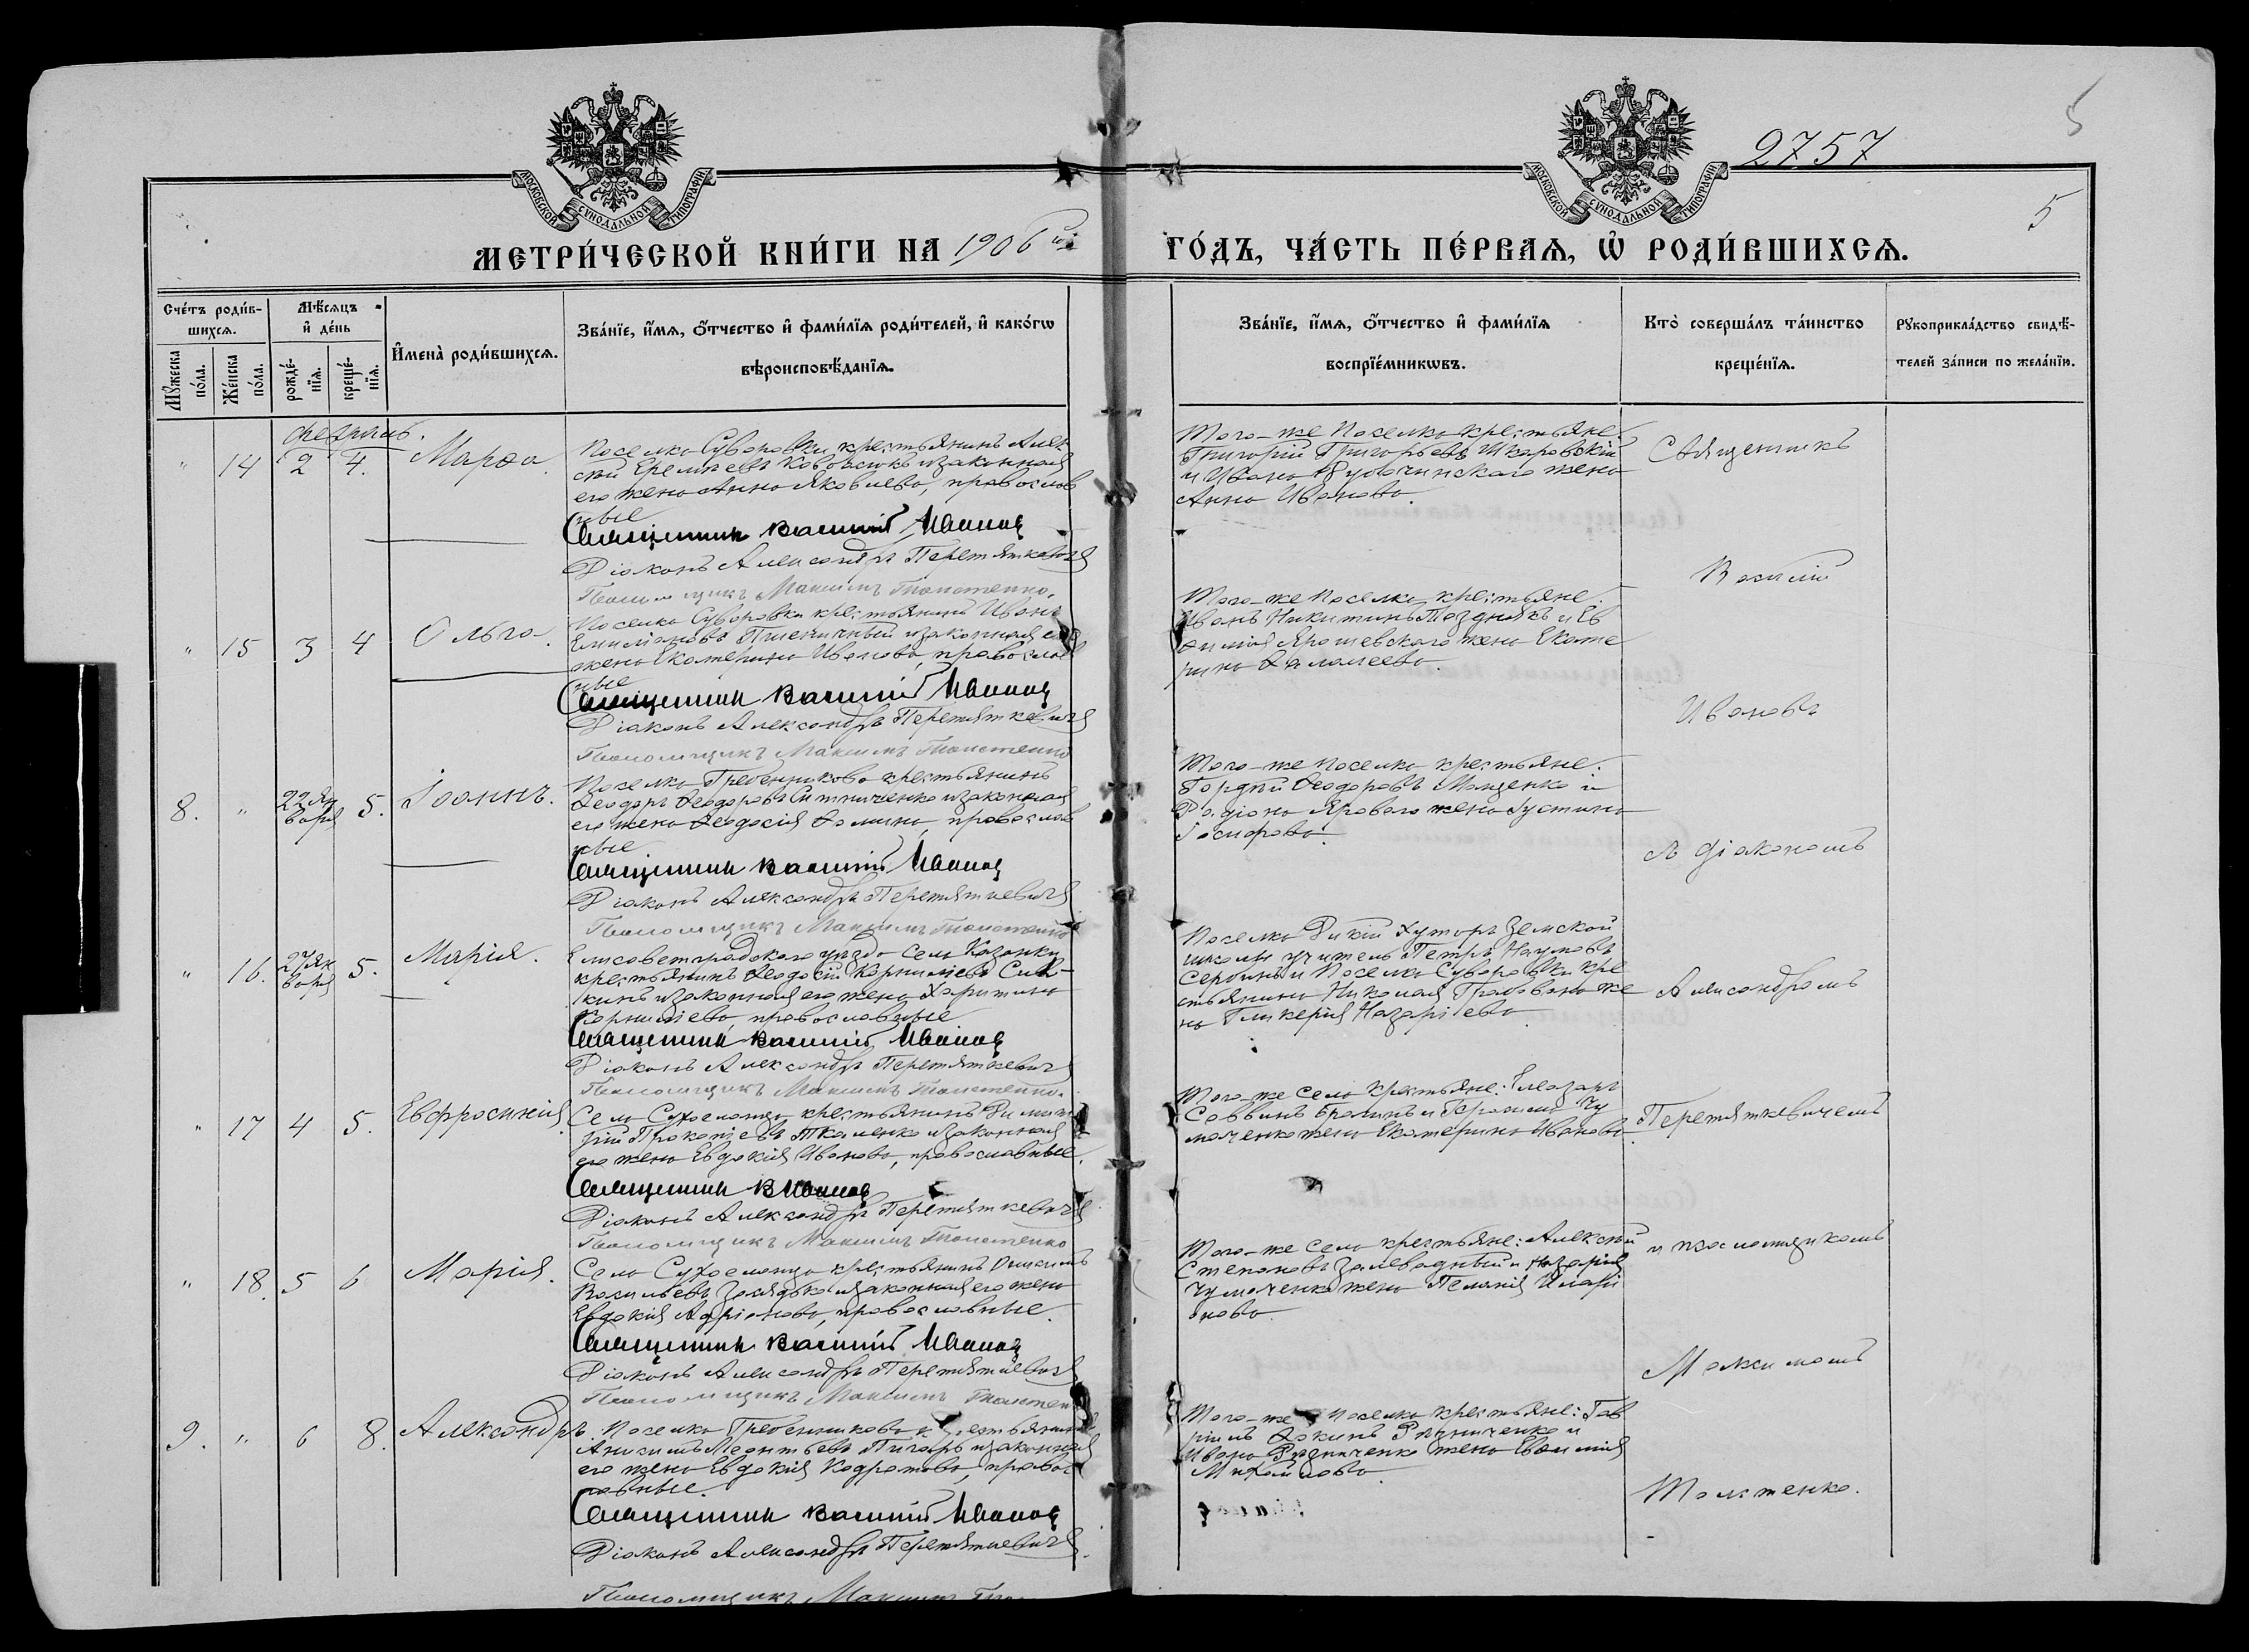 2757
5
5
МОСКОВСКОЙ СѴНОДАЛЬНОЙ ТИПОГРАФІИ
МОСКОВСКОЙ СѴНОДАЛЬНОЙ ТИПОГРАФІИ
МЕТРИ́ЧЕСКОЙ КНИ́ГИ НА 1906 й
ГО́ДЪ, ЧА́СТЬ ПЕ́РВАѦ, Ѡ҆ РОДИ́ВШИХСѦ.
Сче́тъ роди́в-
шихсѧ.
Мꙋ́жеска
по́ла.
Же́нска
по́ла.
Мѣ́сѧцъ
и҆ де́нь
рожде́-
нїѧ.
креще́-
нїѧ.
И҆мена̀ роди́вшихсѧ.
Зва́нїе, и҆́мѧ, ѻ҆́тчество и҆ фами́лїѧ роди́телей, и҆ како́гѡ
вѣроисповѣ́данїѧ.
Зва́нїе, и҆́мѧ, ѻ҆́тчество и҆ фами́лїѧ
воспрїе́мникѡвъ.
Кто̀ соверша́лъ та́инство
креще́нїѧ.
Рꙋкоприкла́дство свидѣ́-
телей за́писи по жела́нїю.
февраль.
" 14 2 4. Марѳа
Поселка Суворовки крестьянинъ Алек-
сѣй Еремѣевъ Ковбасюкъ и законная
его жена Анна Яковлева, православ
ные
Священник Василій Иванов
Діаконъ Александръ Перетяткевичъ
Псаломщикъ Максимъ Толстенко.
Того-же поселка крестьяне
Григорій Григорьевъ Шкаровскій
и Ивана жена
Анна Иванова.
" 15 3 4 Ольга.
Поселка Суворовки крестьянинъ Иванъ
Емиліановъ Пшеничный и законная его
жена Екатерина Иванова, православ
ные
Священник Василій Иванов
Діаконъ Александръ Перетяткевичъ
Псаломщикъ Максимъ Толстенко
Того-же поселка крестьяне:
Иванъ Никитинъ Поздникъ и Ев
ѳимія Ярошевскаго жена Екате
рина
8. " 22 Января 5. Іоаннъ.
Поселка Гребенникова крестьянинъ
Ѳеодоръ Ѳеодоровъ Ситниченко и законная
его жена Ѳеодосія Ѳомина, православ
ные
Священник Василій Иванов
Діаконъ Александръ Перетяткевичъ
Псаломщикъ Максимъ Толстенко
Того-же поселка крестьяне:
Гордѣй Ѳеодоровъ Мащенко и
Родіона Яроваго жена Іустина
Іосифова.
" 16. 27 Января 5. Марія.
Елисаветградскаго уѣзда села Казанки
крестьянинъ Ѳеодосій Корниліевъ
и законная его жена Харитина
Корниліева, православные
Священник Василій Иванов
Діаконъ Александръ Перетяткевичъ
Псаломщикъ Максимъ Толстенко.
Поселка Дикій Хуторъ Земской
школы учитель Петръ Наумовъ
и поселка Суворовки кре
стьянина Николая же
на Гликерія Назаріева
" 17 4 5. Евфросинія
Села Сухоеланца крестьянинъ Димит
рій Прокопіевъ Ткаченко и законная
его жена Евдокія Иванова, православные.
Священник В Иванов
Діаконъ Александръ Перетяткевичъ
Псаломщикъ Максимъ Толстенко
Того-же села крестьяне: Елеазаръ
Саввинъ и Герасима Чу
маченка жена Екатерина Иванова.
" 18. 5 6 Марія.
Села Сухоеланца крестьянинъ Онисимъ
Васильевъ и законная его жена
Евдокія Адріанова, православные.
Священник Василій Иванов
Діаконъ Александръ Перетяткевичъ
Псаломщикъ Максимъ Толстен
Того-же села крестьяне: Алексѣй
Степановъ Залевадный и Назарія
Чумаченка жена Пелагія Иларі
онова.
9. " 6 8. Александръ.
Поселка Гребенникова крестьянинъ
Анисимъ Леонтьевъ и законная
его жена Евдокія Кодратова, правос
лавные.
Священник Василій Иванов
Діаконъ Александръ Перетяткевичъ
Псаломщикъ Максимъ
Того-же поселка крестьяне: Гав
ріилъ Рѣзниченко и
Ивана Рѣзниченко жена Евѳимія
Михайлова.
Священникъ
Василій
Ивановъ
съ діакономъ
Александромъ
Перетяткевичемъ
и псаломщикомъ
Максимомъ
Толстенко.